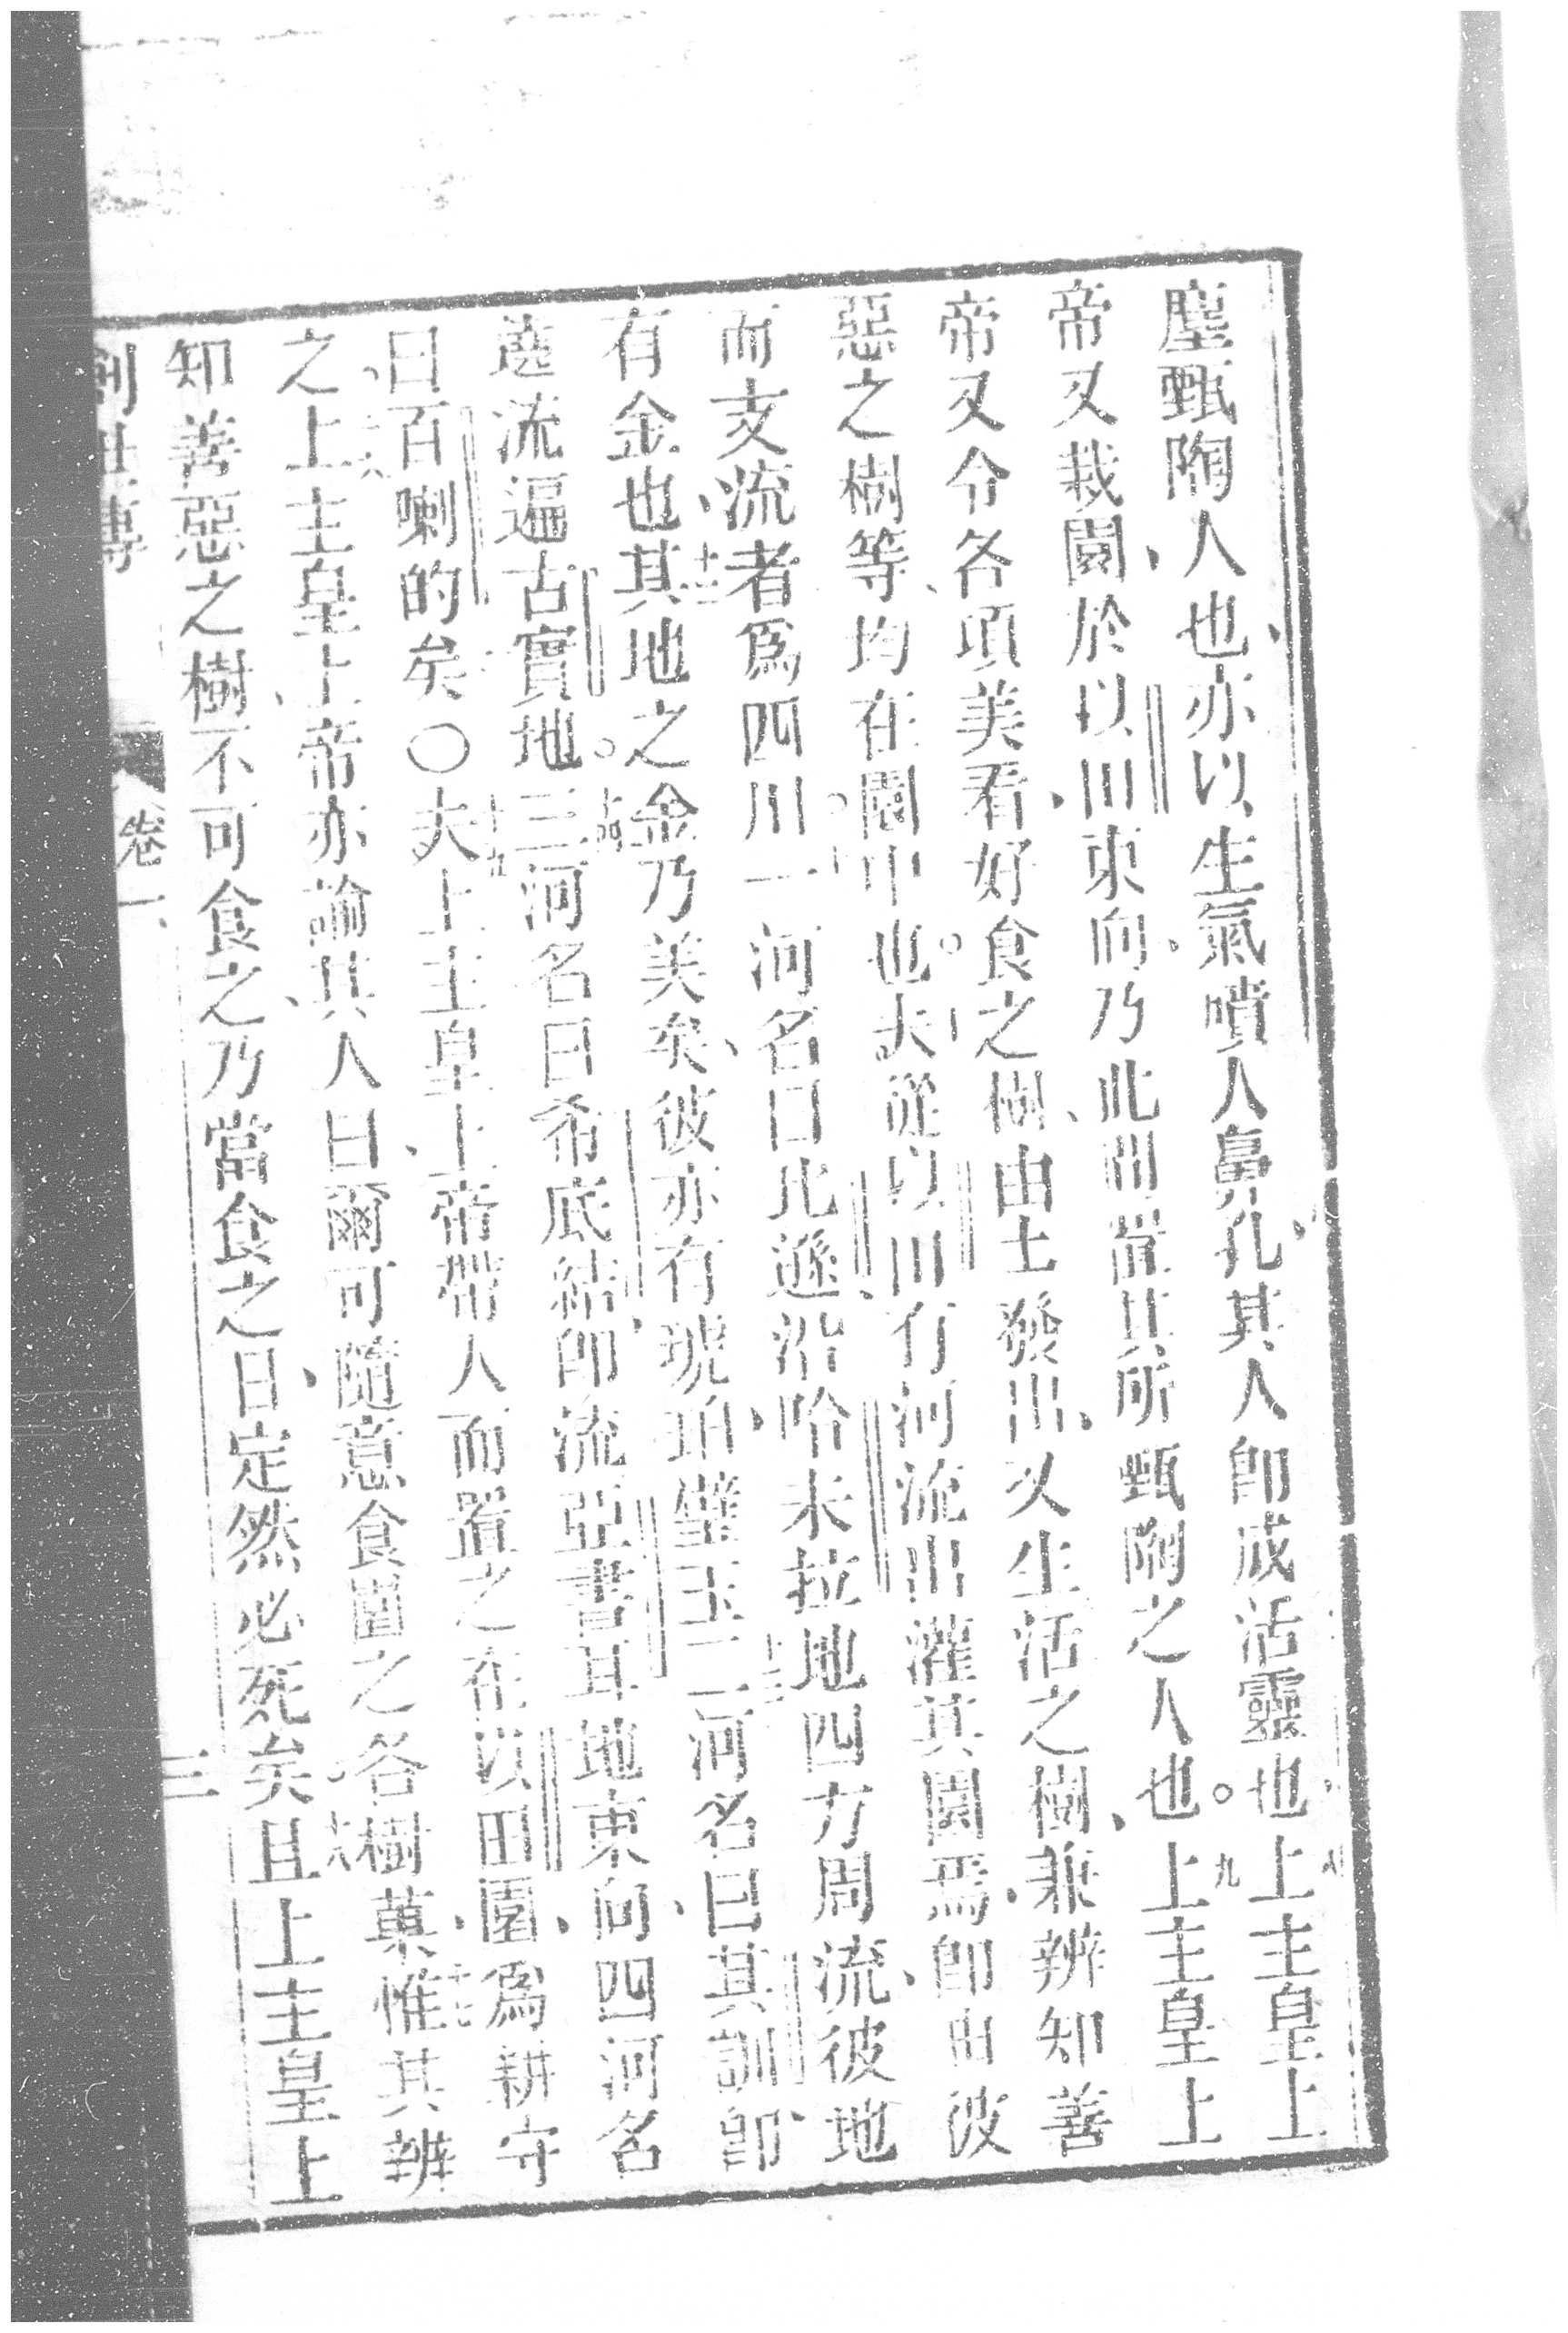 塵甄陶人也、亦以生氣噴人鼻孔、其人卽成活靈也、八上主皇上
帝又栽園於以田東向、乃此間當其所甄陶之人也。九上主皇上
帝又令各項美看、好食之樹、由土發出、以生活之樹、兼辨知善
惡之樹等、均在園中也。十夫從以田有河流出灌其園焉、卽由彼
而支流者爲四川。十一一河名曰比遜、沿哈未拉地四方周流、彼地
有金也、十二其地之金乃美矣、彼亦有琥珀、璧玉、十三二河名曰其訓、卽
遶流遍古實地。十四三河名曰希底結、卽流亞書耳地東向、四河名
曰百喇的矣〇十五夫上主皇上帝帶人而置之在以田園、爲耕守
之。十六上主皇上帝亦諭其人曰、爾可隨意食園之各樹菓、十七惟其辨
知善惡之樹、不可食之、乃當食之日、定然必死矣。十八且上主皇上
創世傳 卷一 三